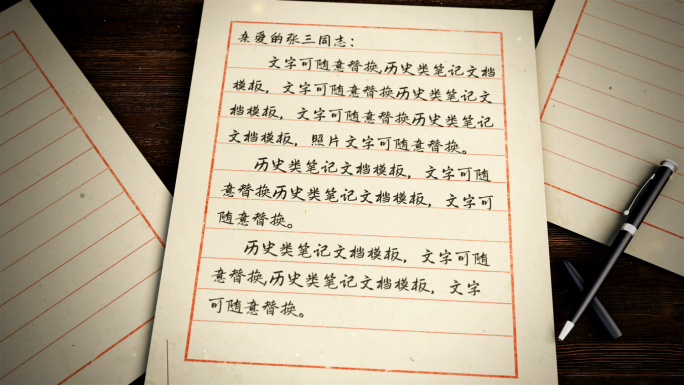 亲爱的张三同志：
文字可随意替换,历史类笔记文档
模板，文字可随意替换历史类笔记文
档模板，文字可随意替换历史类笔记
文档模板，照片文字可随意替换。
历史类笔记文档模板，文字可随
意替换历史类笔记文档模板，文字可
随意替换。
历史类笔记文档模板，文字可随
意替换,历史类笔记文档模板，文字
可随意替换。